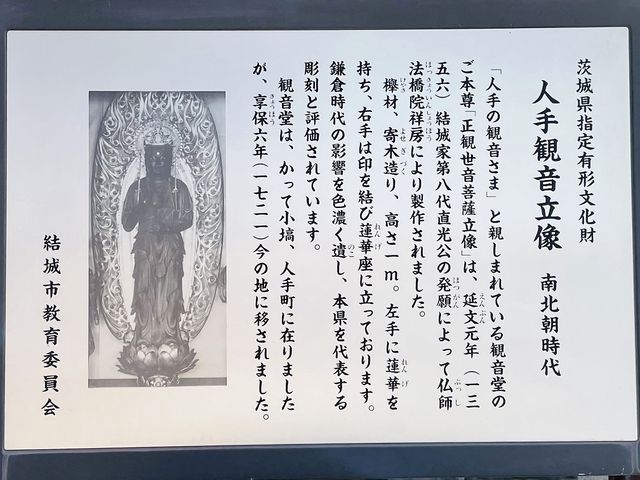 茨城県指定有形文化財
人手観音立像 南北朝時代
「人手の観音さま」と親しまれている観音堂の
ご本尊「正観世音菩薩立像」は、延文元年（一三
五六）結城家第八代直光公の発願によって仏師
法橋院祥房により製作されました。
欅材、寄木造り、高さ一m。左手に蓮華を
持ち、右手は印を結び蓮華座に立っております。
鎌倉時代の影響を色濃く遺し、本県を代表する
彫刻と評価されています。
観音堂は、かって小塙、人手町に在りました
が、享保六年（一七二一）今の地に移されました。
結城市教育委員会